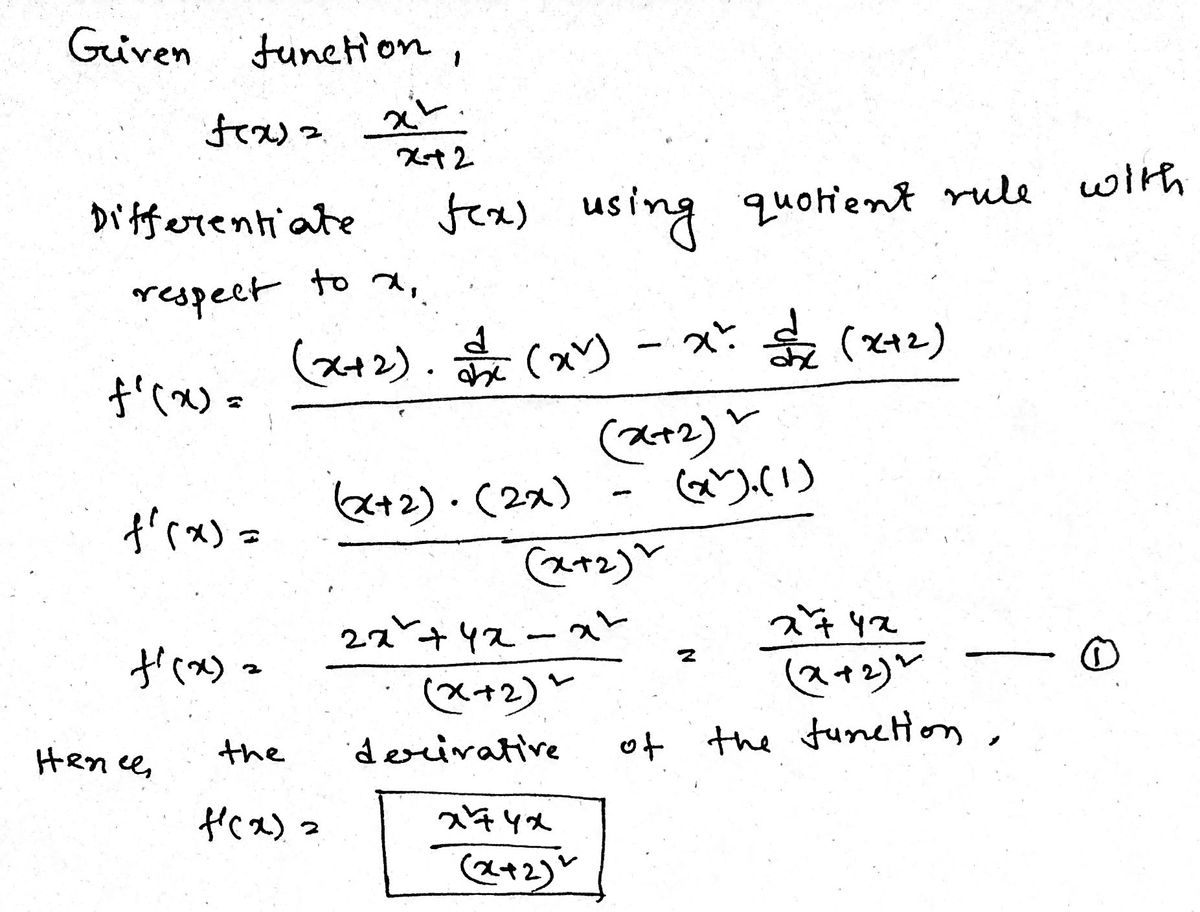 Given function,
f(x) = x² / (x+2)
Differentiate f(x) using quotient rule with
respect to x,
f'(x) = ((x+2) · d/dx (x²) - x² · d/dx (x+2)) / (x+2)²
f'(x) = ((x+2) · (2x) - (x²)·(1)) / (x+2)²
f'(x) = (2x² + 4x - x²) / (x+2)² = (x² + 4x) / (x+2)² — ①
Hence, the derivative of the function,
f'(x) = (x² + 4x) / (x+2)²